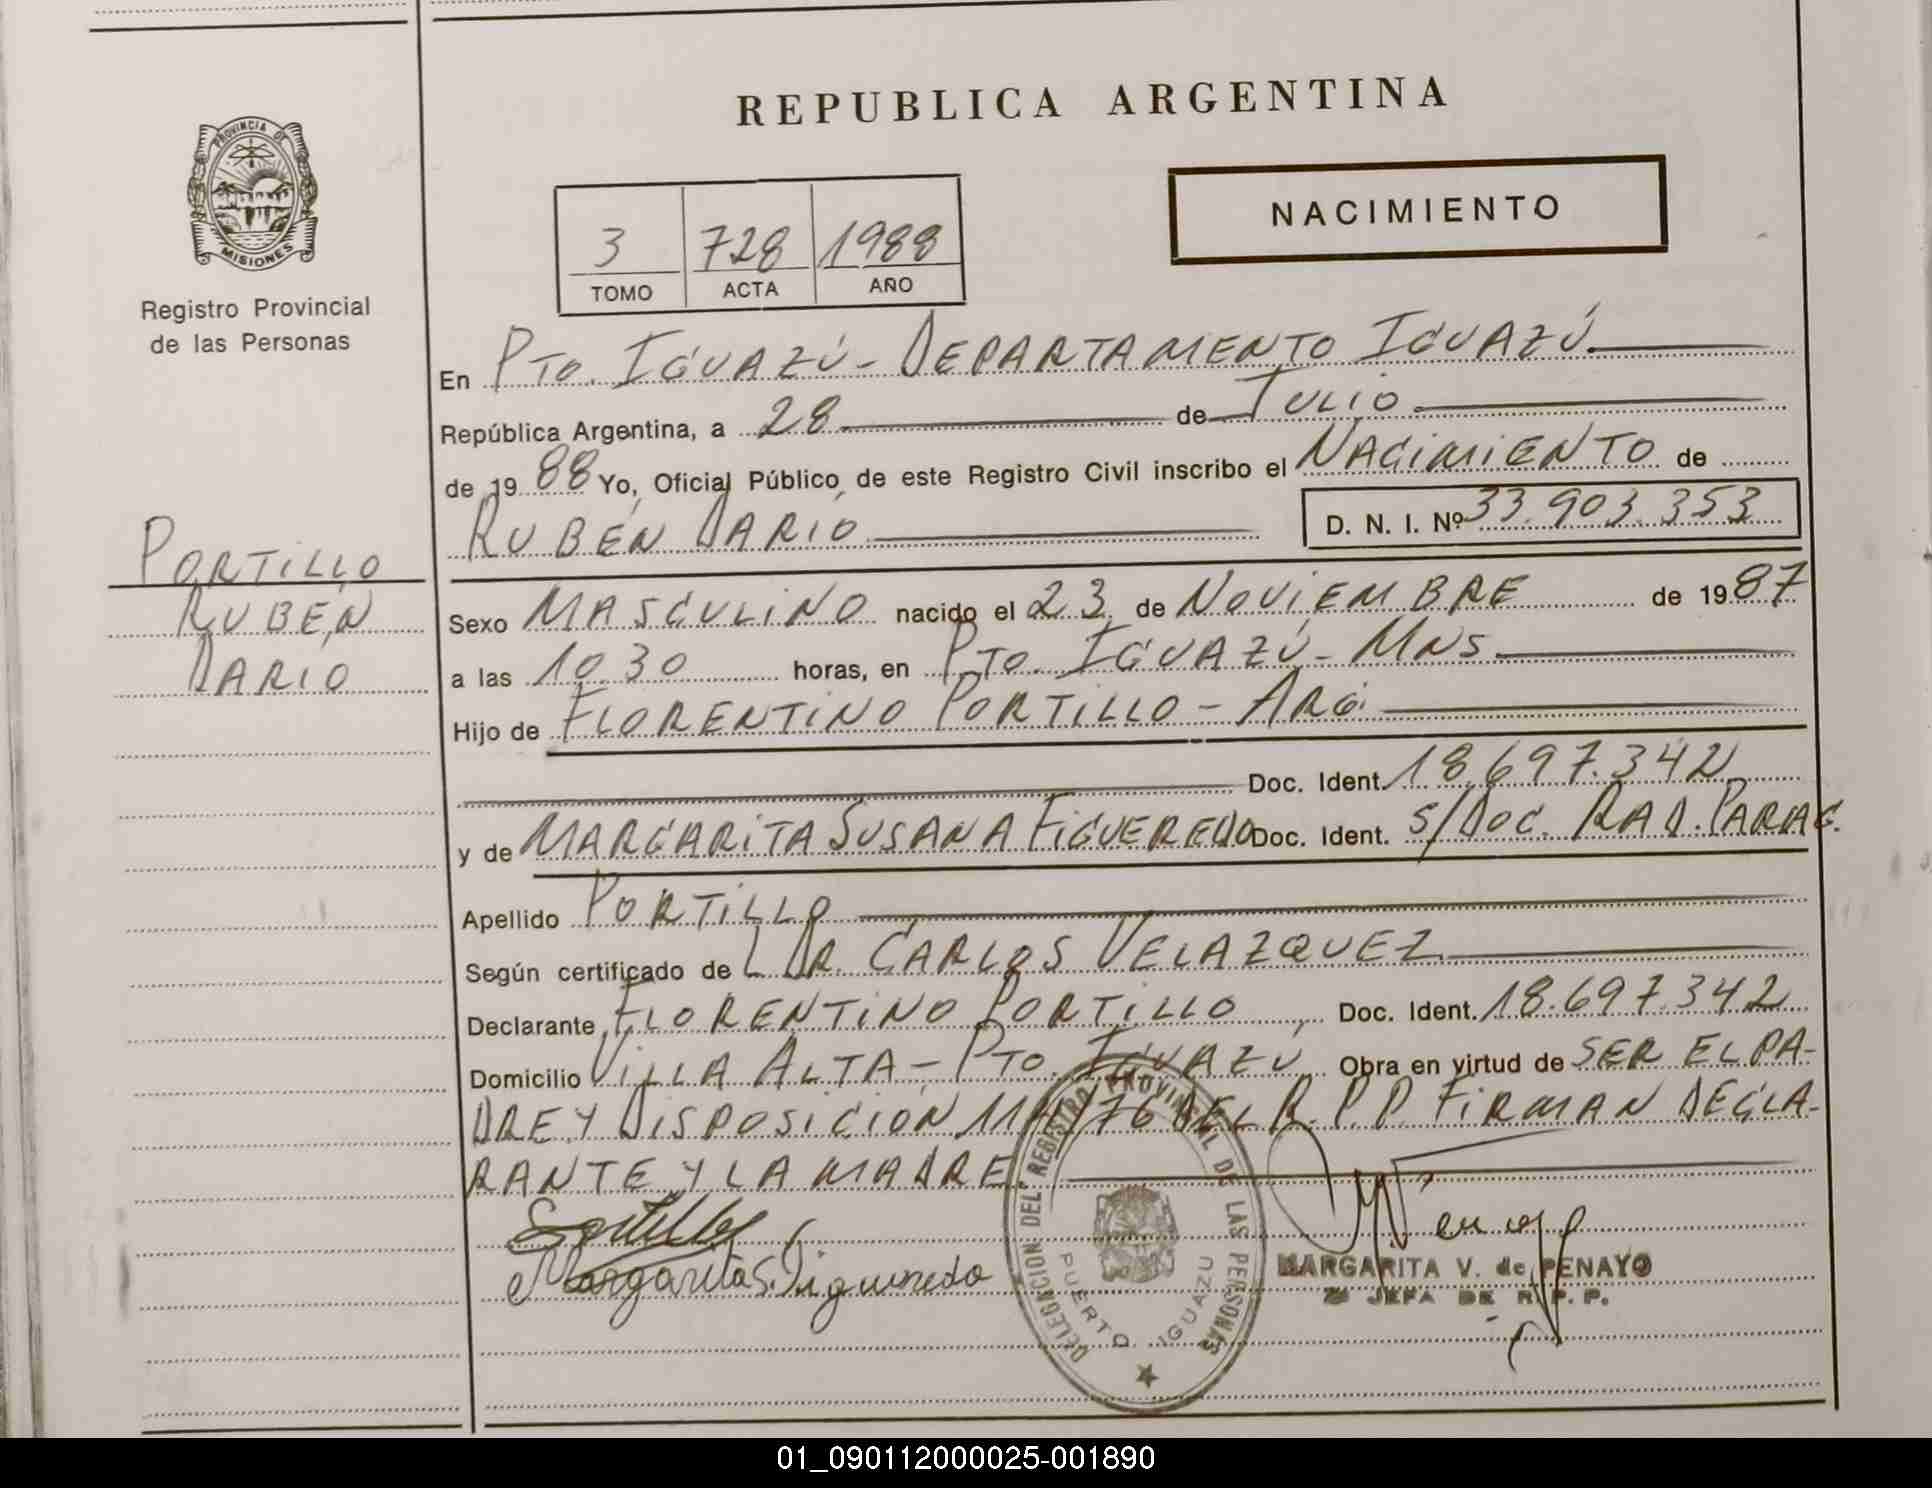 REPUBLICA ARGENTINA
PROVINCIA DE
MISIONES
Registro Provincial
de las Personas
NACIMIENTO
3 728 1988
TOMO ACTA AÑO
En PTO. IGUAZÚ - DEPARTAMENTO IGUAZÚ
República Argentina, a 28 de JULIO
de 1988 Yo, Oficial Público de este Registro Civil inscribo el NACIMIENTO de
RUBÉN DARIO D. N. I. Nº 33.903.353
PORTILLO
RUBEN
DARIO
Sexo MASCULINO nacido el 23 de NOVIEMBRE de 1987
a las 10.30 horas, en PTO. IGUAZÚ - MNS
Hijo de FLORENTINO PORTILLO - ARG.
Doc. Ident. 18.697.342
y de MARGARITA SUSANA FIGUEREDO Doc. Ident. S/DOC. RAD. PARAG.
Apellido PORTILLO
Según certificado de DR. CARLOS VELAZQUEZ
Declarante FLORENTINO PORTILLO, Doc. Ident. 18.697.342
Domicilio VILLA ALTA - PTO. IGUAZÚ Obra en virtud de SER EL PA-
DRE Y DISPOSICIÓN DEL R.P.P. FIRMAN DECLA-
RANTE Y LA MADRE.
Margarita S. Figueredo
DELEGACION DEL REGISTRO PROVINCIAL DE LAS PERSONAS
PUERTO IGUAZU
MARGARITA V. de PENAYO
JEFA DE R. P. P.
01_090112000025-001890